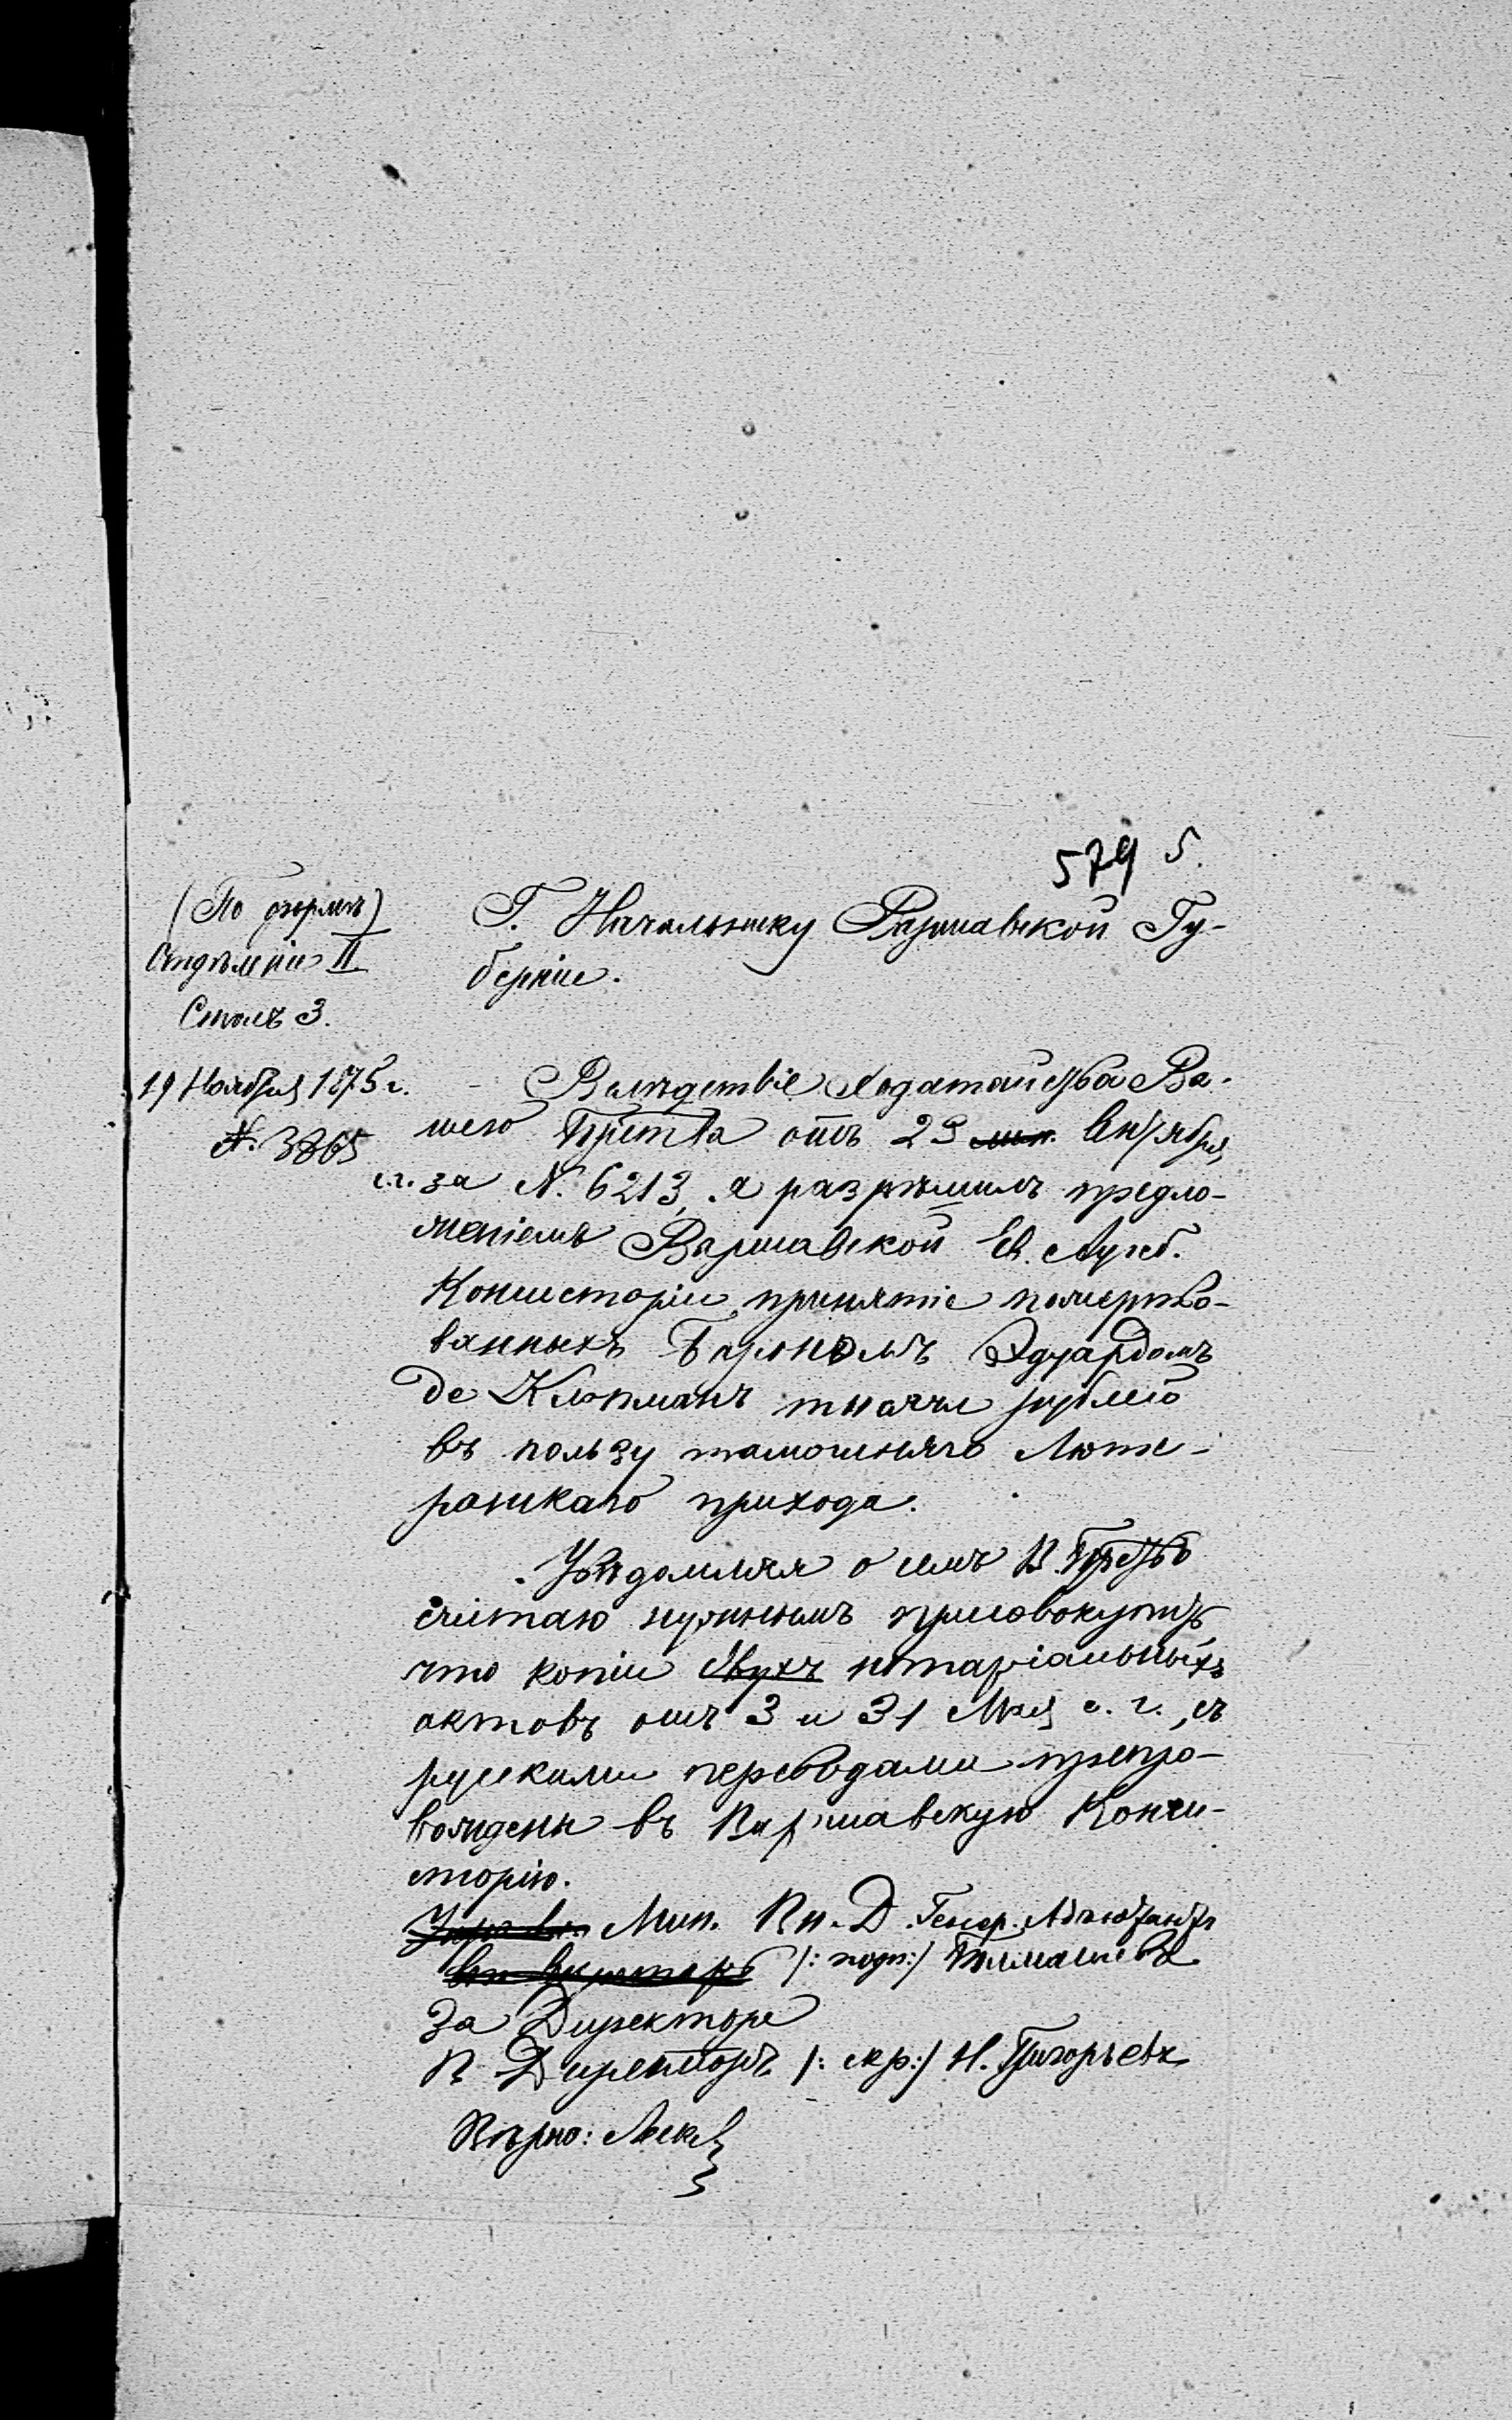 579 5.
(По формѣ)
Отдѣленіе II
Столъ 3.
19 Ноября 1875 г.
№. 3865
Г. Начальнику Варшавской Гу-
берніи.
Вслѣдствіе ходатайства Ва-
шего Прев-ства отъ 29 Октября
с.г. за №. 6213, я разрѣшилъ предло-
женіемъ Варшавской Ев. Аугсб.
Консисторіи принятіе пожертво-
ванныхъ Барономъ Эдуардомъ
де Клопманъ тысячи рублей
въ пользу тамошняго Люте-
ранскаго прихода.
Увѣдомляя о семъ В. Прев-ство
считаю нужнымъ присовокупить,
что копіи двухъ нотаріальныхъ
актовъ отъ 3 и 31 Мая с. г., съ
русскими переводами препро-
вождены въ Варшавскую Конси-
сторію.
Мин. Вн. Д. Генер. Адъютантъ
/: подп:/ Тимашевъ
За Директора
В. Директоръ /: скр:/ Н. Григорьевъ
Вѣрно: